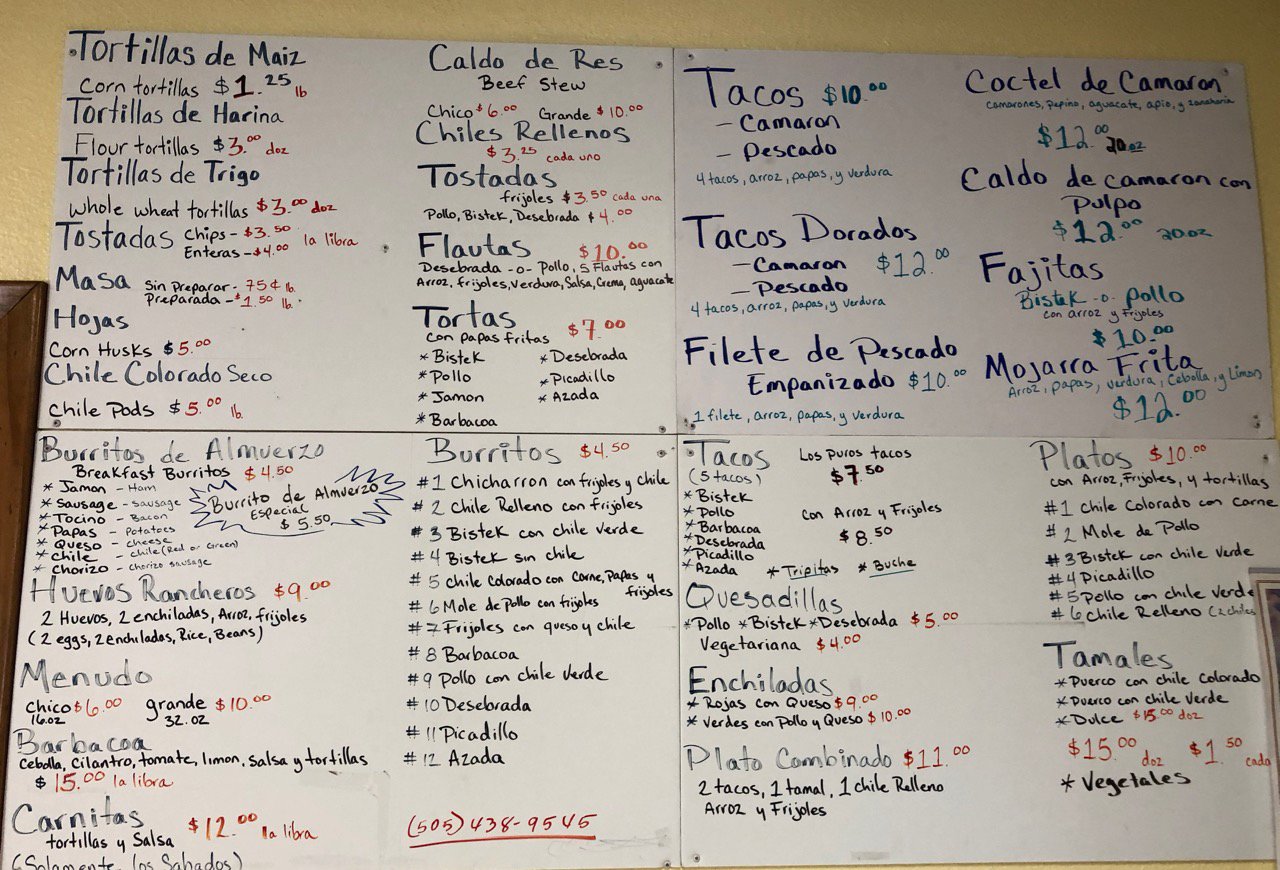 Tortillas de Maiz
Corn tortillas $1.25 lb
Tortillas de Harina
Flour tortillas $3.00 doz
Tortillas de Trigo
whole wheat tortillas $3.00 doz
Tostadas Chips - $3.50 la libra
Enteras - $4.00
Masa Sin Preparar - 75¢ lb.
Preparada - $1.50 lb.
Hojas
Corn Husks $5.00
Chile Colorado Seco
Chile Pods $5.00 lb.
Caldo de Res
Beef Stew
Chico $6.00 Grande $10.00
Chiles Rellenos
$3.25 cada uno
Tostadas
frijoles $3.50 cada una
Pollo, Bistek, Desebrada $4.00
Flautas $10.00
Desebrada -o- Pollo, 5 Flautas con
Arroz, frijoles, Verdura, Salsa, Crema, aguacate
Tortas $7.00
con papas fritas
* Bistek * Desebrada
* Pollo * Picadillo
* Jamon * Azada
* Barbacoa
Tacos $10.00
- Camaron
- Pescado
4 tacos, arroz, papas, y verdura
Tacos Dorados
- Camaron $12.00
- Pescado
4 tacos, arroz, papas, y verdura
Filete de Pescado
Empanizado $10.00
1 filete, arroz, papas, y verdura
Coctel de Camaron
camarones, pepino, aguacate, apio, y zanahoria
$12.00 20oz
Caldo de camaron con
Pulpo
$12.00 20oz
Fajitas
Bistek -o- pollo
con arroz y Frijoles
$10.00
Mojarra Frita
Arroz, papas, verdura, Cebolla, y Limon
$12.00
Burritos de Almuerzo
Breakfast Burritos $4.50
* Jamon - Ham
* Sausage - sausage
* Tocino - Bacon
* Papas - Potatoes
* Queso - cheese
* Chile - chile (Red or Green)
* Chorizo - chorizo sausage
Burrito de Almuerzo
Especial
$5.50
Huevos Rancheros $9.00
2 Huevos, 2 enchiladas, Arroz, frijoles
(2 eggs, 2 enchiladas, Rice, Beans)
Menudo
chico $6.00 grande $10.00
16oz 32.oz
Barbacoa
Cebolla, Cilantro, tomate, limon, salsa y tortillas
$15.00 la libra
Carnitas $12.00 la libra
tortillas y Salsa
(Solamente los Sabados)
Burritos $4.50
#1 Chicharron con frijoles y chile
#2 Chile Relleno con frijoles
#3 Bistek con chile verde
#4 Bistek sin chile
#5 Chile Colorado con Carne, Papas y
frijoles
#6 Mole de Pollo con frijoles
#7 Frijoles con queso y chile
#8 Barbacoa
#9 Pollo con chile Verde
#10 Desebrada
#11 Picadillo
#12 Azada
(505) 438-9545
Tacos Los Puros tacos
(5 tacos) $7.50
* Bistek
* Pollo
* Barbacoa con Arroz y Frijoles
* Desebrada $8.50
* Picadillo
* Azada * Tripitas * Buche
Quesadillas
* Pollo * Bistek * Desebrada $5.00
Vegetariana $4.00
Enchiladas
* Rojas con Queso $9.00
* Verdes con Pollo y Queso $10.00
Plato Combinado $11.00
2 tacos, 1 tamal, 1 chile Relleno
Arroz y Frijoles
Platos $10.00
con Arroz, Frijoles, y tortillas
#1 Chile Colorado con Carne
#2 Mole de Pollo
#3 Bistek con chile verde
#4 Picadillo
#5 Pollo con chile verde
#6 Chile Relleno (2 chiles
Tamales
* Puerco con chile Colorado
* Puerco con chile Verde
* Dulce $15.00 doz
$15.00 doz $1.50 cada
* Vegetales